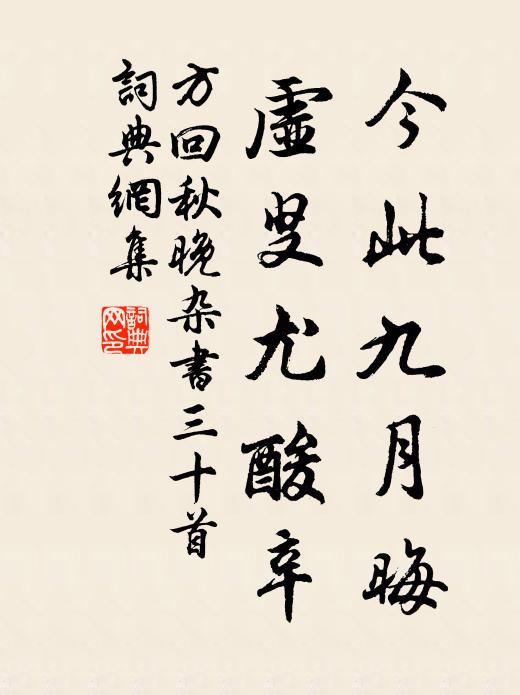 今此九月晦
虚叟尤酸辛
方回秋晚杂書三十首
詞典網集
詞典网印